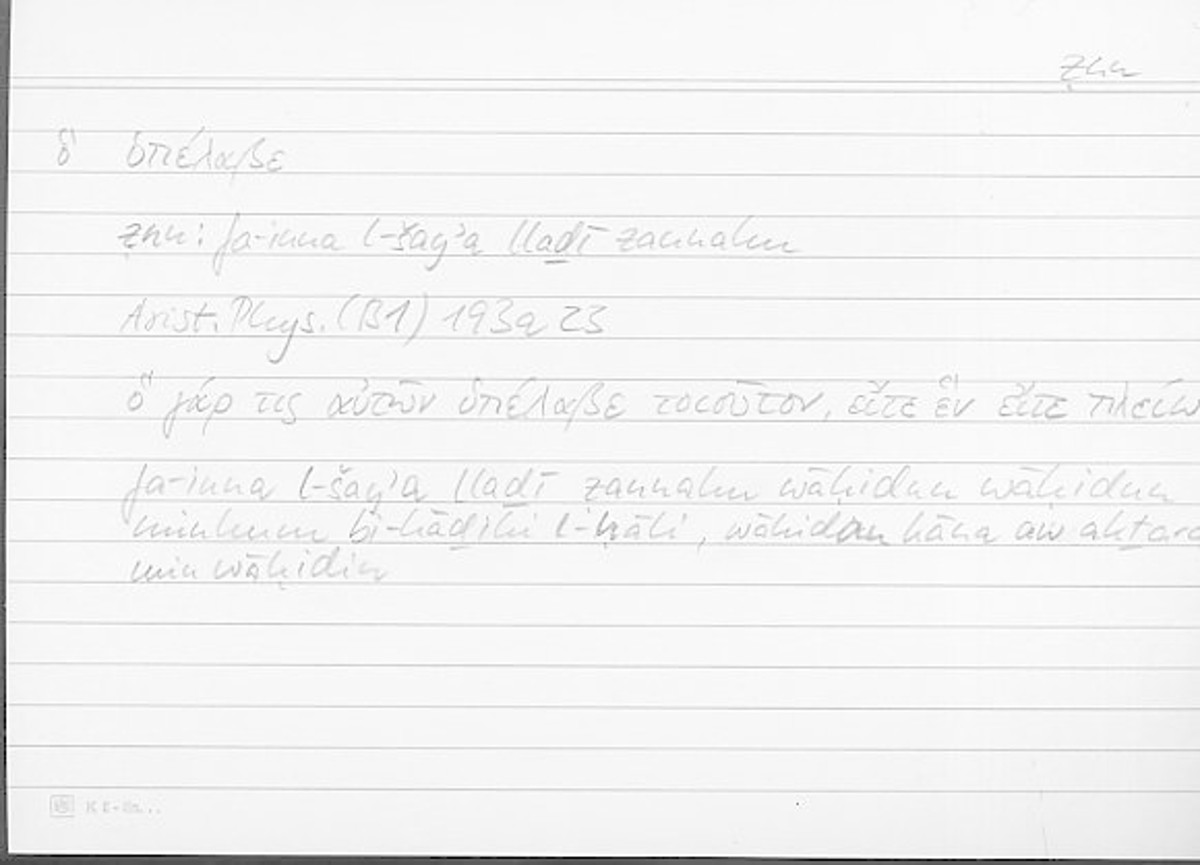 ẓnn
ὃ ὑπέλαβε
ẓnn: fa-inna l-šayʾa lladī zannahu
Arist. Phys. (B1) 193a 23
ὃ γάρ τις αὐτῶν ὑπέλαβε τοιοῦτον, εἴτε ἓν εἴτε πλείω
fa-inna l-šayʾa lladī zannahu wāḥidun wāḥidun
minhum bi-hāḏihi l-ḥāli, wāḥidan kāna aw akṯara
min wāḥidin